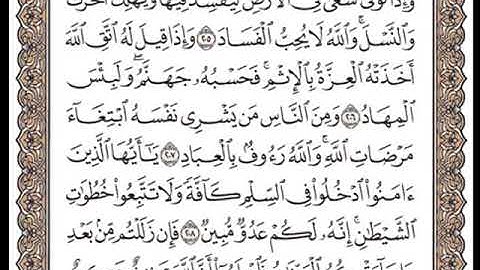 وَإِذَا تَوَلَّىٰ سَعَىٰ فِي ٱلۡأَرۡضِ لِيُفۡسِدَ فِيهَا وَيُهۡلِكَ ٱلۡحَرۡثَ
وَٱلنَّسۡلَۚ وَٱللَّهُ لَا يُحِبُّ ٱلۡفَسَادَ ٢٠٥ وَإِذَا قِيلَ لَهُ ٱتَّقِ ٱللَّهَ
أَخَذَتۡهُ ٱلۡعِزَّةُ بِٱلۡإِثۡمِۚ فَحَسۡبُهُۥ جَهَنَّمُۖ وَلَبِئۡسَ
ٱلۡمِهَادُ ٢٠٦ وَمِنَ ٱلنَّاسِ مَن يَشۡرِي نَفۡسَهُ ٱبۡتِغَآءَ
مَرۡضَاتِ ٱللَّهِۚ وَٱللَّهُ رَءُوفُۢ بِٱلۡعِبَادِ ٢٠٧ يَٰٓأَيُّهَا ٱلَّذِينَ
ءَامَنُواْ ٱدۡخُلُواْ فِي ٱلسِّلۡمِ كَآفَّةٗ وَلَا تَتَّبِعُواْ خُطُوَٰتِ
ٱلشَّيۡطَٰنِۚ إِنَّهُۥ لَكُمۡ عَدُوّٞ مُّبِينٞ ٢٠٨ فَإِن زَلَلۡتُم مِّنۢ بَعۡدِ